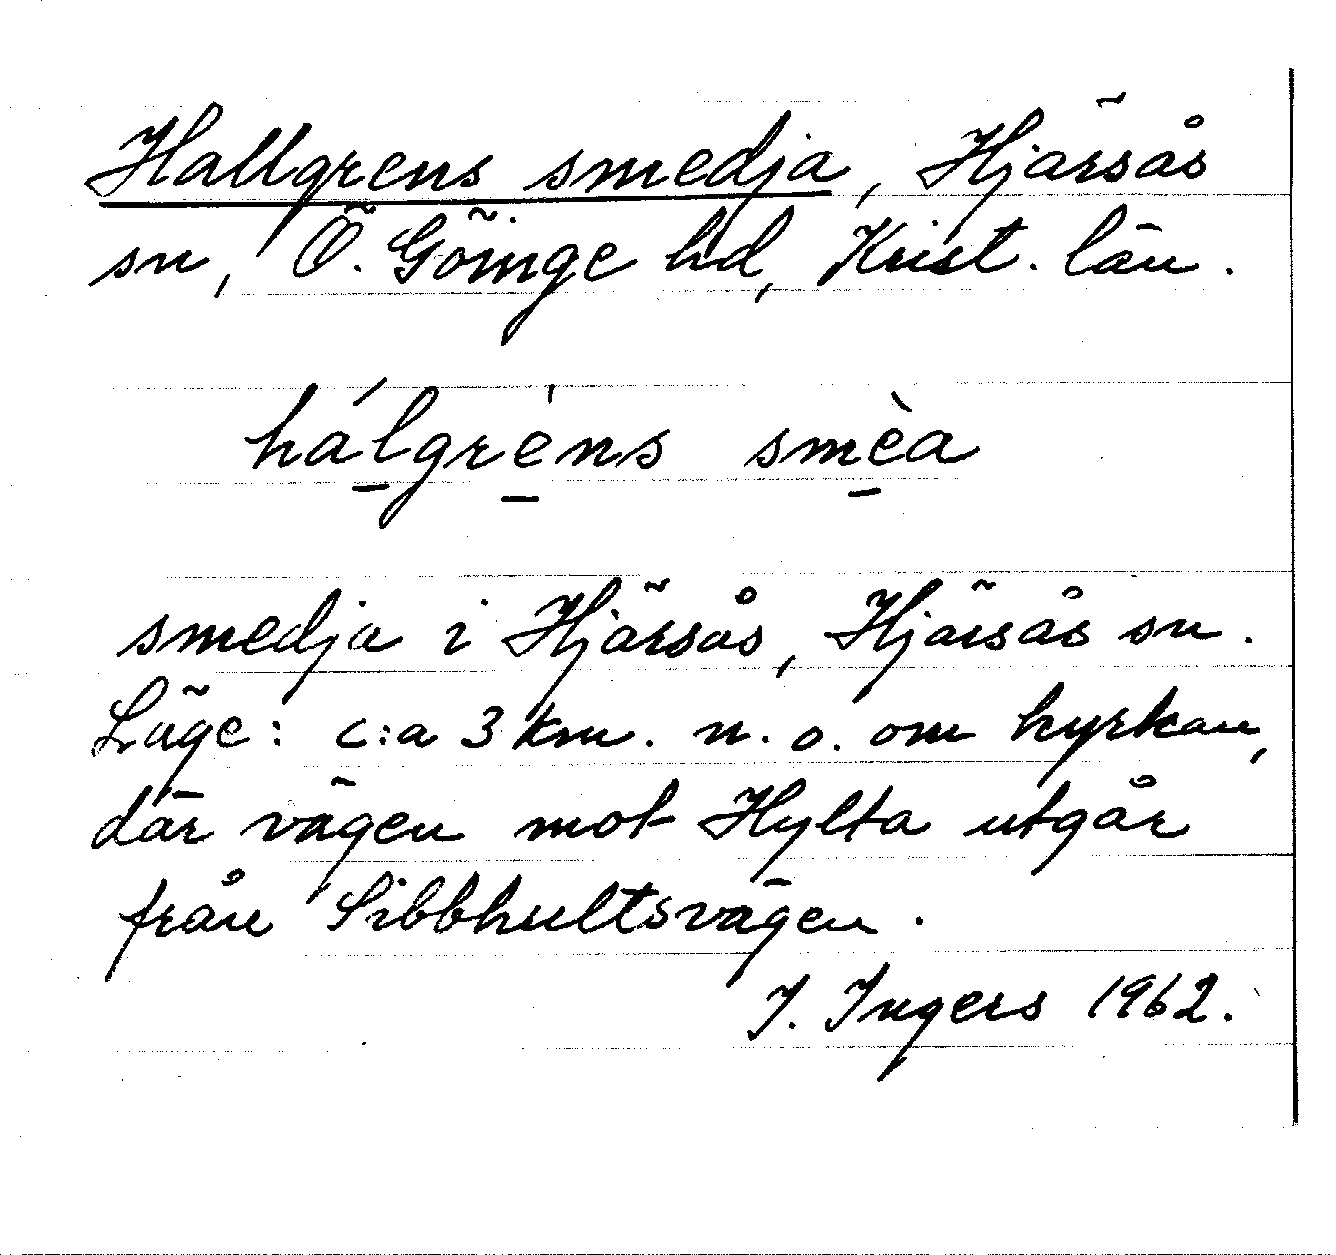 Hallgrens smedja, Hjärsås
sn, Ö. Göinge hd, Krist. län.
hálgrèns smèa
smedja i Hjärsås, Hjärsås sn.
Läge: c:a 3 km. n. o. om kyrkan,
där vägen mot Hylta utgår
från Sibbhultsvägen.
I. Ingers 1962.